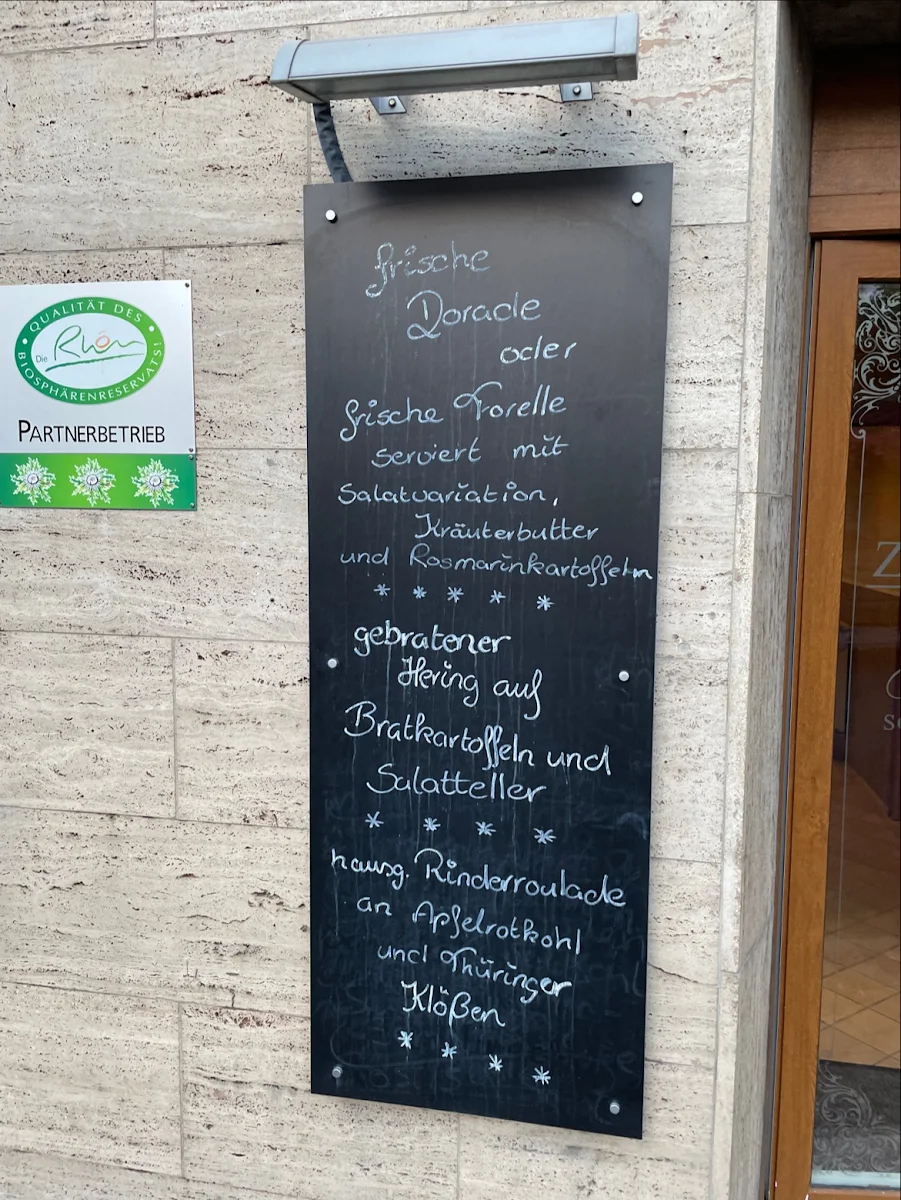 QUALITÄT DES
Die Rhön
BIOSPHÄRENRESERVATS!
PARTNERBETRIEB
frische
Dorade
oder
frische Forelle
serviert mit
Salatvariation,
Kräuterbutter
und Rosmarinkartoffeln
* * * * *
gebratener
Hering auf
Bratkartoffeln und
Salatteller
* * * *
hausg. Rinderroulade
an Apfelrotkohl
und Thüringer
Klößen
* * * *